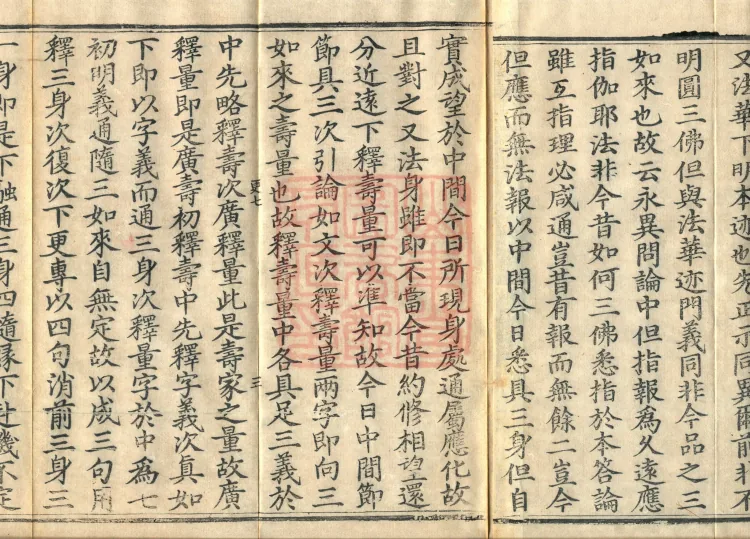 又法華下明本迹也先正示同異爾前非不
明圓三佛但與法華迹門義同非今品之三
如來也故云永異問論中但指報爲久遠應
指伽耶法非今昔如何三佛悉指於本答論
雖互指理必咸通豈昔有報而無餘二豈今
但應而無法報以中間今日悉具三身但自
實成望於中間今日所現身處通屬應化故
且對之又法身雖即不當今昔約修相望還
分近遠下釋壽量可以準知故今日中間節
節具三次引論如文次釋壽量兩字即向三
如來之壽量也故釋壽量中各具足三義於
更七
三
中先略釋壽次廣釋量此是壽家之量故廣
釋量即是廣壽初釋壽中先釋字義次眞如
下即以字義而通三身次釋量字於中爲七
初明義通隨三如來自無定故以成三句用
釋三身次復次下更專以四句消前三身三
一身即是下融通三身四隨緣下赴機不定